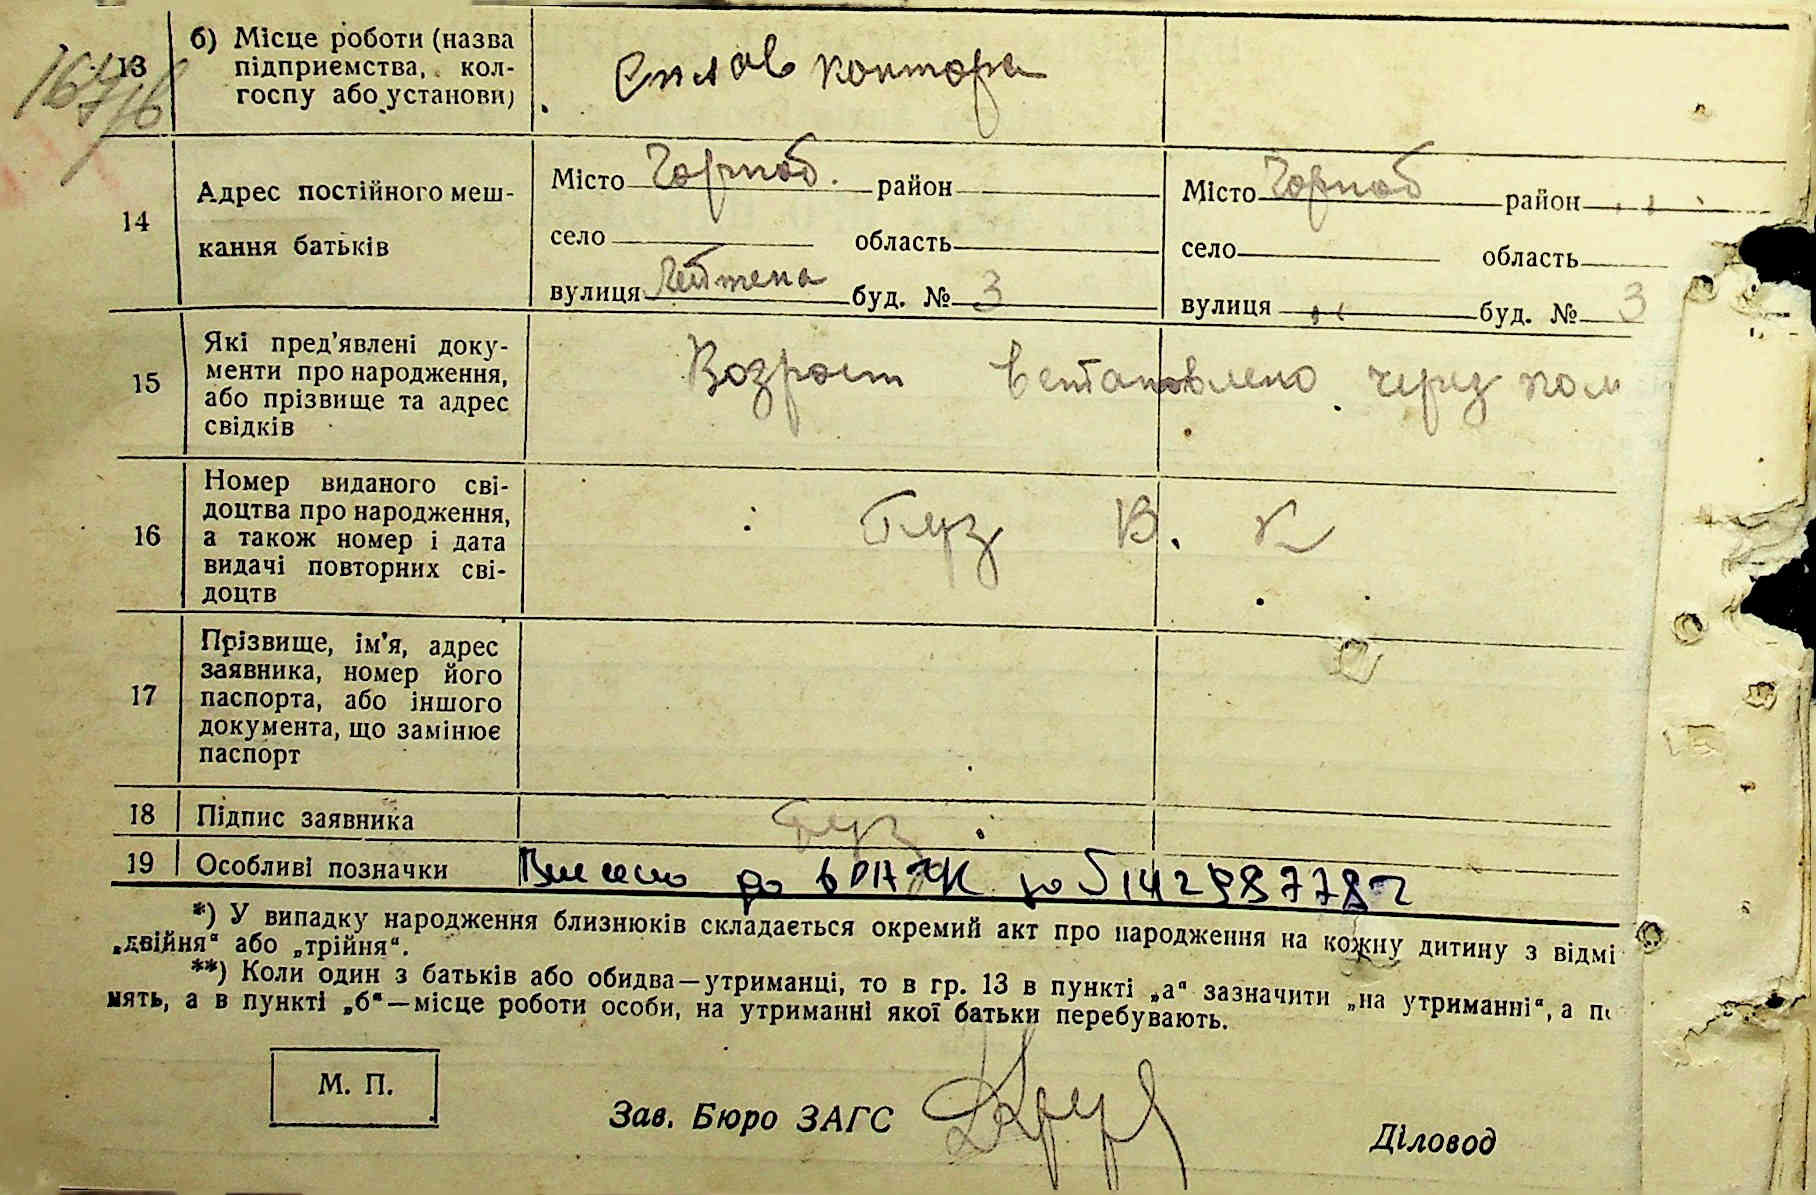 13
б) Місце роботи (назва
підприємства, кол-
госпу або установи)
Сплав контора
14
Адрес постійного меш-
кання батьків
Місто Чорноб. район
село область
вулиця буд. № 3
Місто Чорноб район
село область
вулиця -"- буд. № 3
15
Які пред'явлені доку-
менти про народження,
або прізвище та адрес
свідків
Возраст встановлено через ком
16
Номер виданого сві-
доцтва про народження,
а також номер і дата
видачі повторних сві-
доцтв
Гуз В. К
17
Прізвище, ім'я, адрес
заявника, номер його
паспорта, або іншого
документа, що замінює
паспорт
18
Підпис заявника
Гуз
19
Особливі позначки
Внесено до
*) У випадку народження близнюків складається окремий акт про народження на кожну дитину з відмі
„двійня“ або „трійня“.
**) Коли один з батьків або обидва—утриманці, то в гр. 13 в пункті „а“ зазначити „на утриманні“, а п
мять, а в пункті „б“—місце роботи особи, на утриманні якої батьки перебувають.
М. П.
Зав. Бюро ЗАГС
Діловод